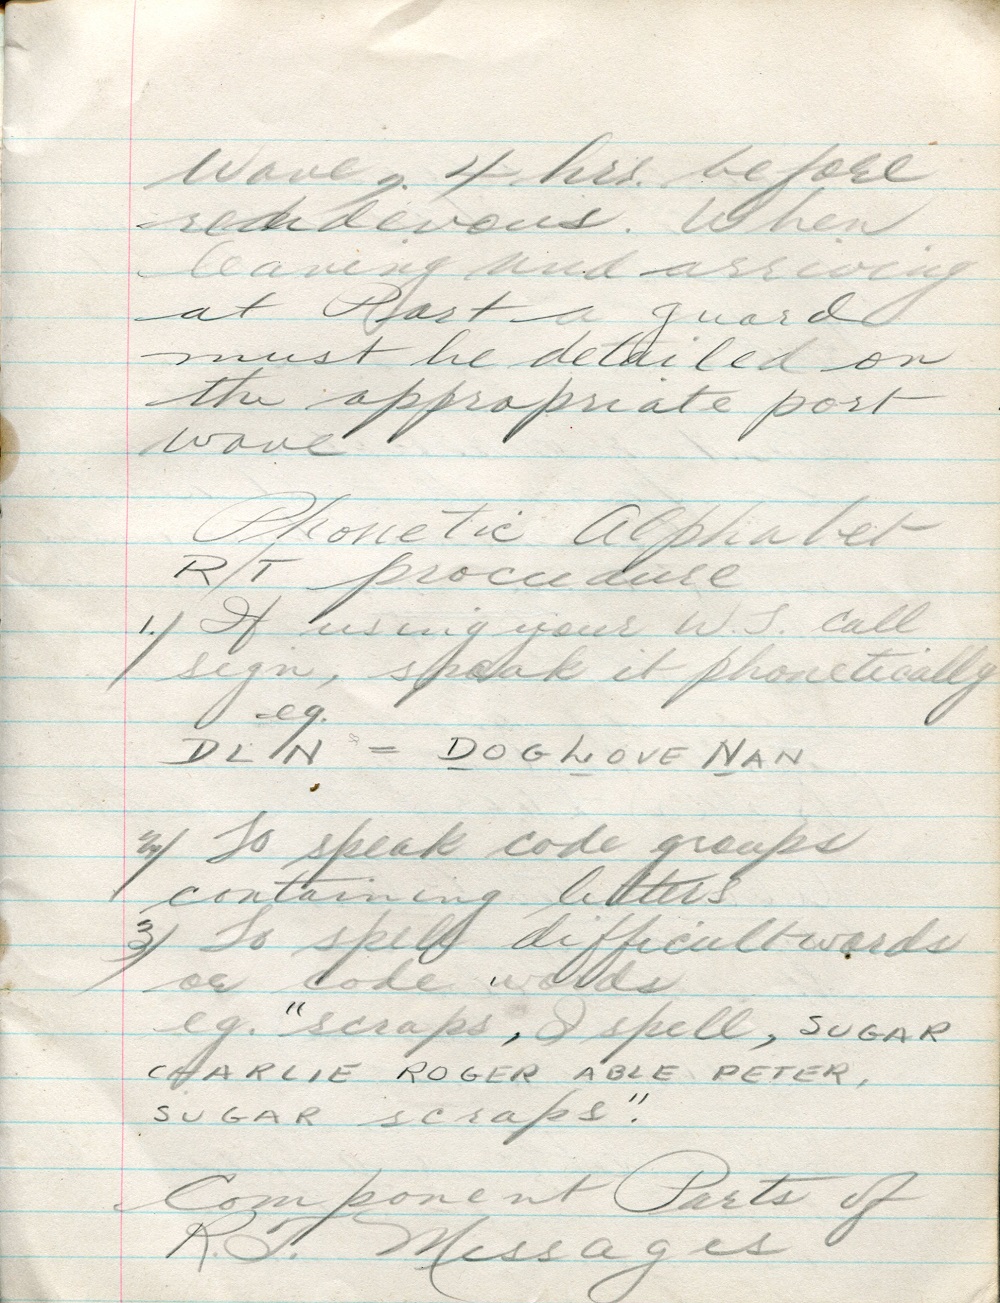 wave, 4 hrs. before
rendevous. When
leaving and arriving
at Port a guard
must be detailed on
the appropriate port
wave
Phonetic Alphabet
R/T procudure
1.) If using your W.S. call
sign, speak it phonetically
eg.
DL/N = DOG LOVE NAN
2) To speak code groups
containing letters
3) To spell difficult words
or code words
eg. "scraps, I spell, SUGAR
CHARLIE ROGER ABLE PETER,
SUGAR scraps".
Component Parts of
R.T. Messages